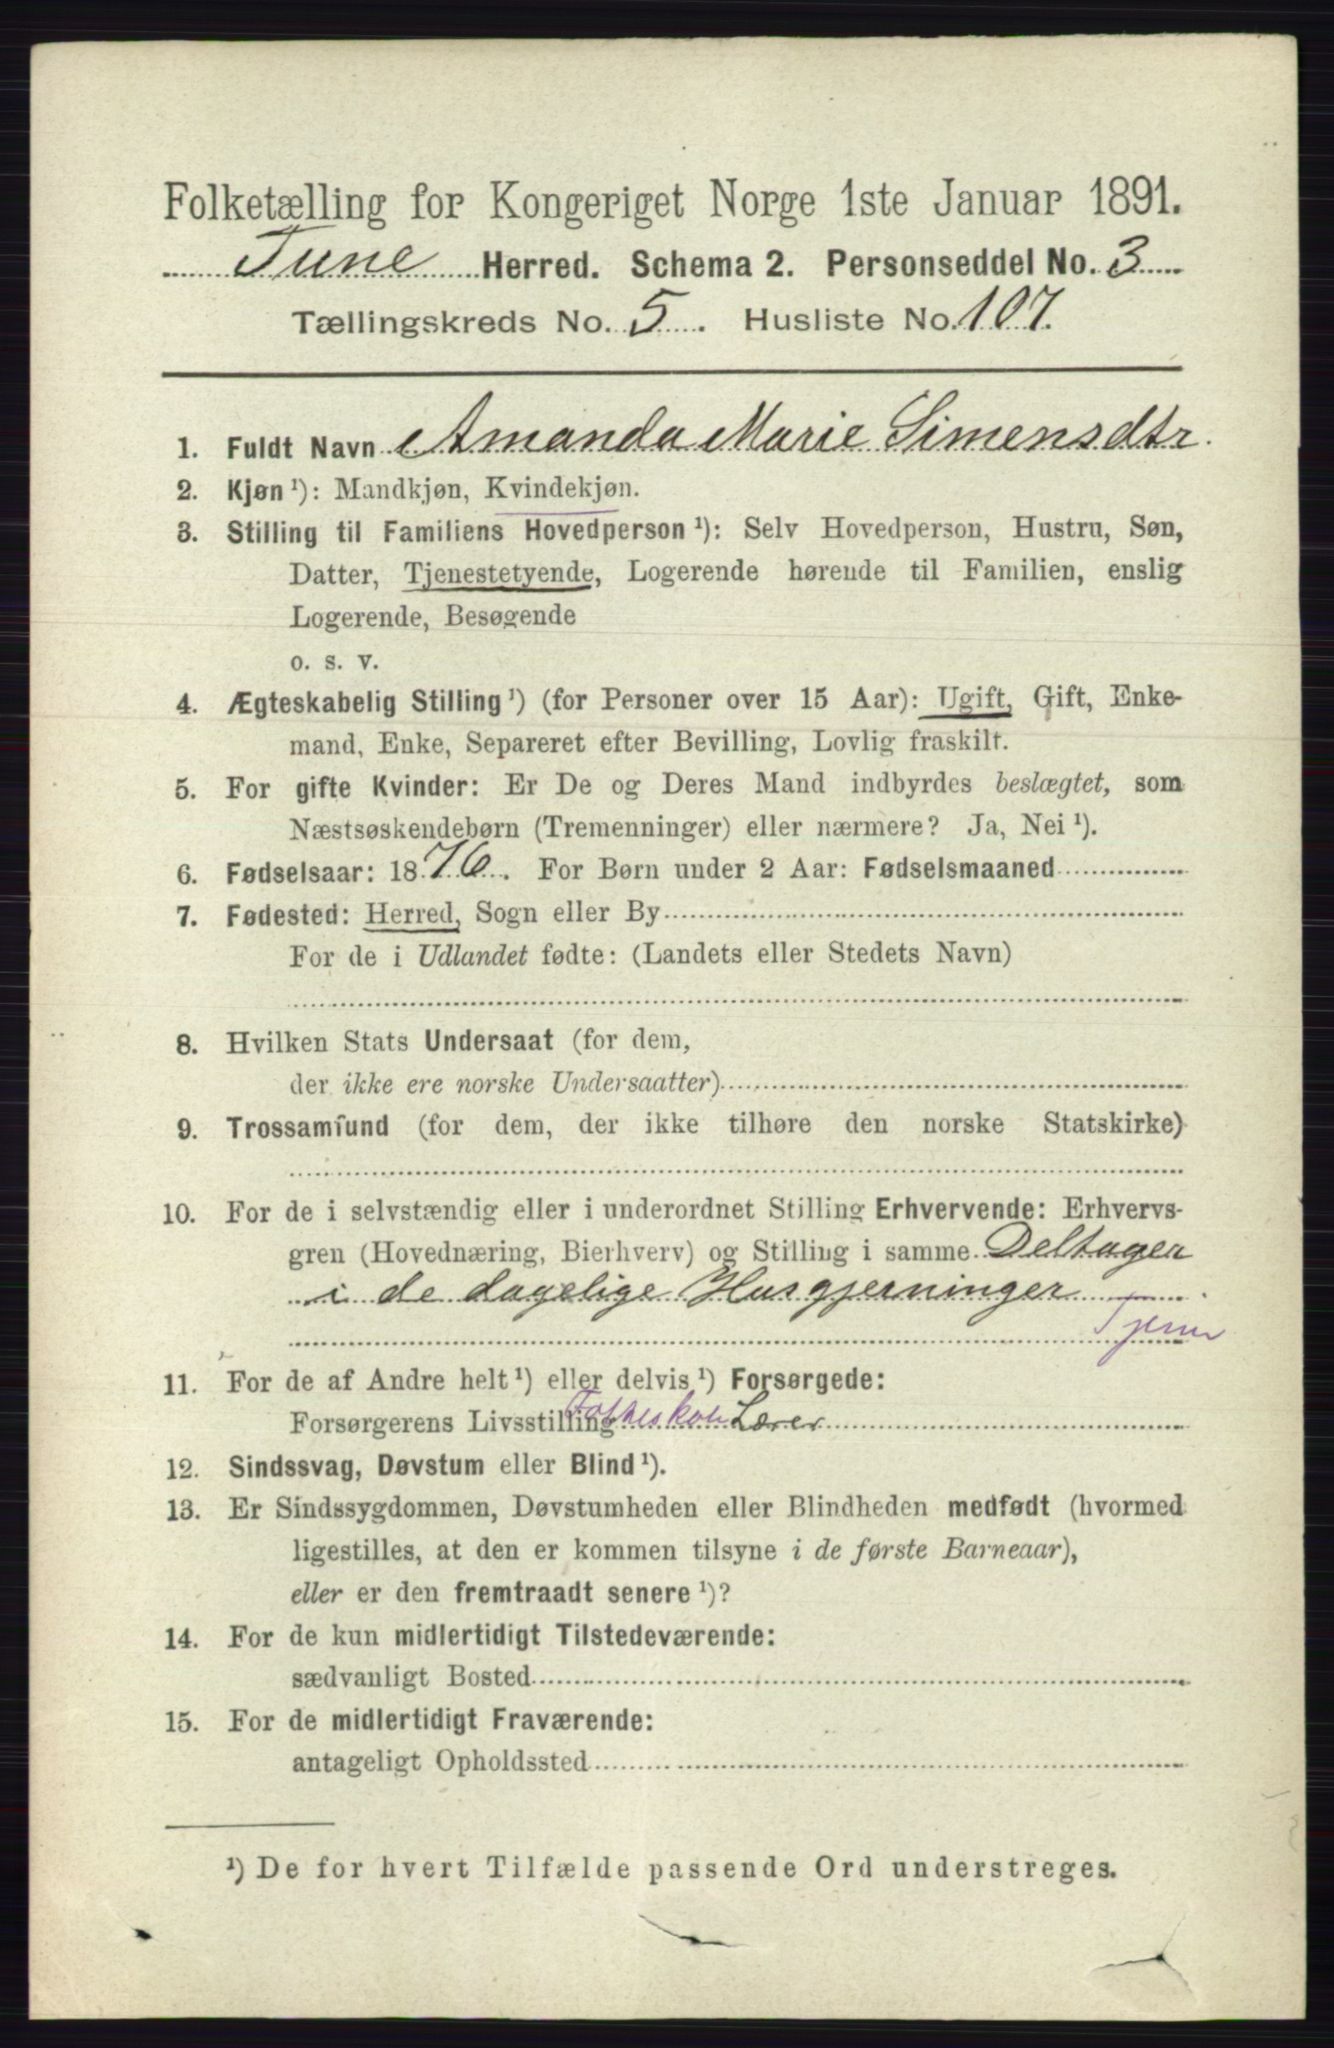 Folketælling for Kongeriget Norge 1ste Januar 1891.
Tune Herred. Schema 2. Personseddel No. 3
Tællingskreds No. 5. Husliste No. 107.
1. Fuldt Navn Amanda Marie Simensdtr.
2. Kjøn ¹): Mandkjøn, Kvindekjøn.
3. Stilling til Familiens Hovedperson ¹): Selv Hovedperson, Hustru, Søn,
Datter, Tjenestetyende, Logerende hørende til Familien, enslig
Logerende, Besøgende
o. s. v.
4. Ægteskabelig Stilling ¹) (for Personer over 15 Aar): Ugift, Gift, Enke-
mand, Enke, Separeret efter Bevilling, Lovlig fraskilt.
5. For gifte Kvinder: Er De og Deres Mand indbyrdes beslægtet, som
Næstsøskendebørn (Tremenninger) eller nærmere? Ja, Nei ¹).
6. Fødselsaar: 1876. For Børn under 2 Aar: Fødselsmaaned
7. Fødested: Herred, Sogn eller By
For de i Udlandet fødte: (Landets eller Stedets Navn)
8. Hvilken Stats Undersaat (for dem,
der ikke ere norske Undersaatter)
9. Trossamfund (for dem, der ikke tilhøre den norske Statskirke)
10. For de i selvstændig eller i underordnet Stilling Erhvervende: Erhvervs-
gren (Hovednæring, Bierhverv) og Stilling i samme Deltager
i de dagelige Husgjerninger
11. For de af Andre helt ¹) eller delvis ¹) Forsørgede:
Forsørgerens Livsstilling Lærer
12. Sindssvag, Døvstum eller Blind ¹).
13. Er Sindssygdommen, Døvstumheden eller Blindheden medfødt (hvormed
ligestilles, at den er kommen tilsyne i de første Barneaar),
eller er den fremtraadt senere ¹)?
14. For de kun midlertidigt Tilstedeværende:
sædvanligt Bosted
15. For de midlertidigt Fraværende:
antageligt Opholdssted
¹) De for hvert Tilfælde passende Ord understreges.